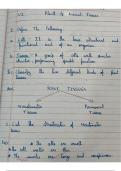 Plant & Animal Tissues
1. Define the following:
Cell: It is the basic structural and
functional unit of an organism.
Tissue: A group of cells with similar
structure, performing specific function
Classify the two different kinds of Plant
tissues
PLANT TISSUES
Meristematic
Tissues
Permanent
Tissues
List the characteristics of meristematic
tissues
the cells are small